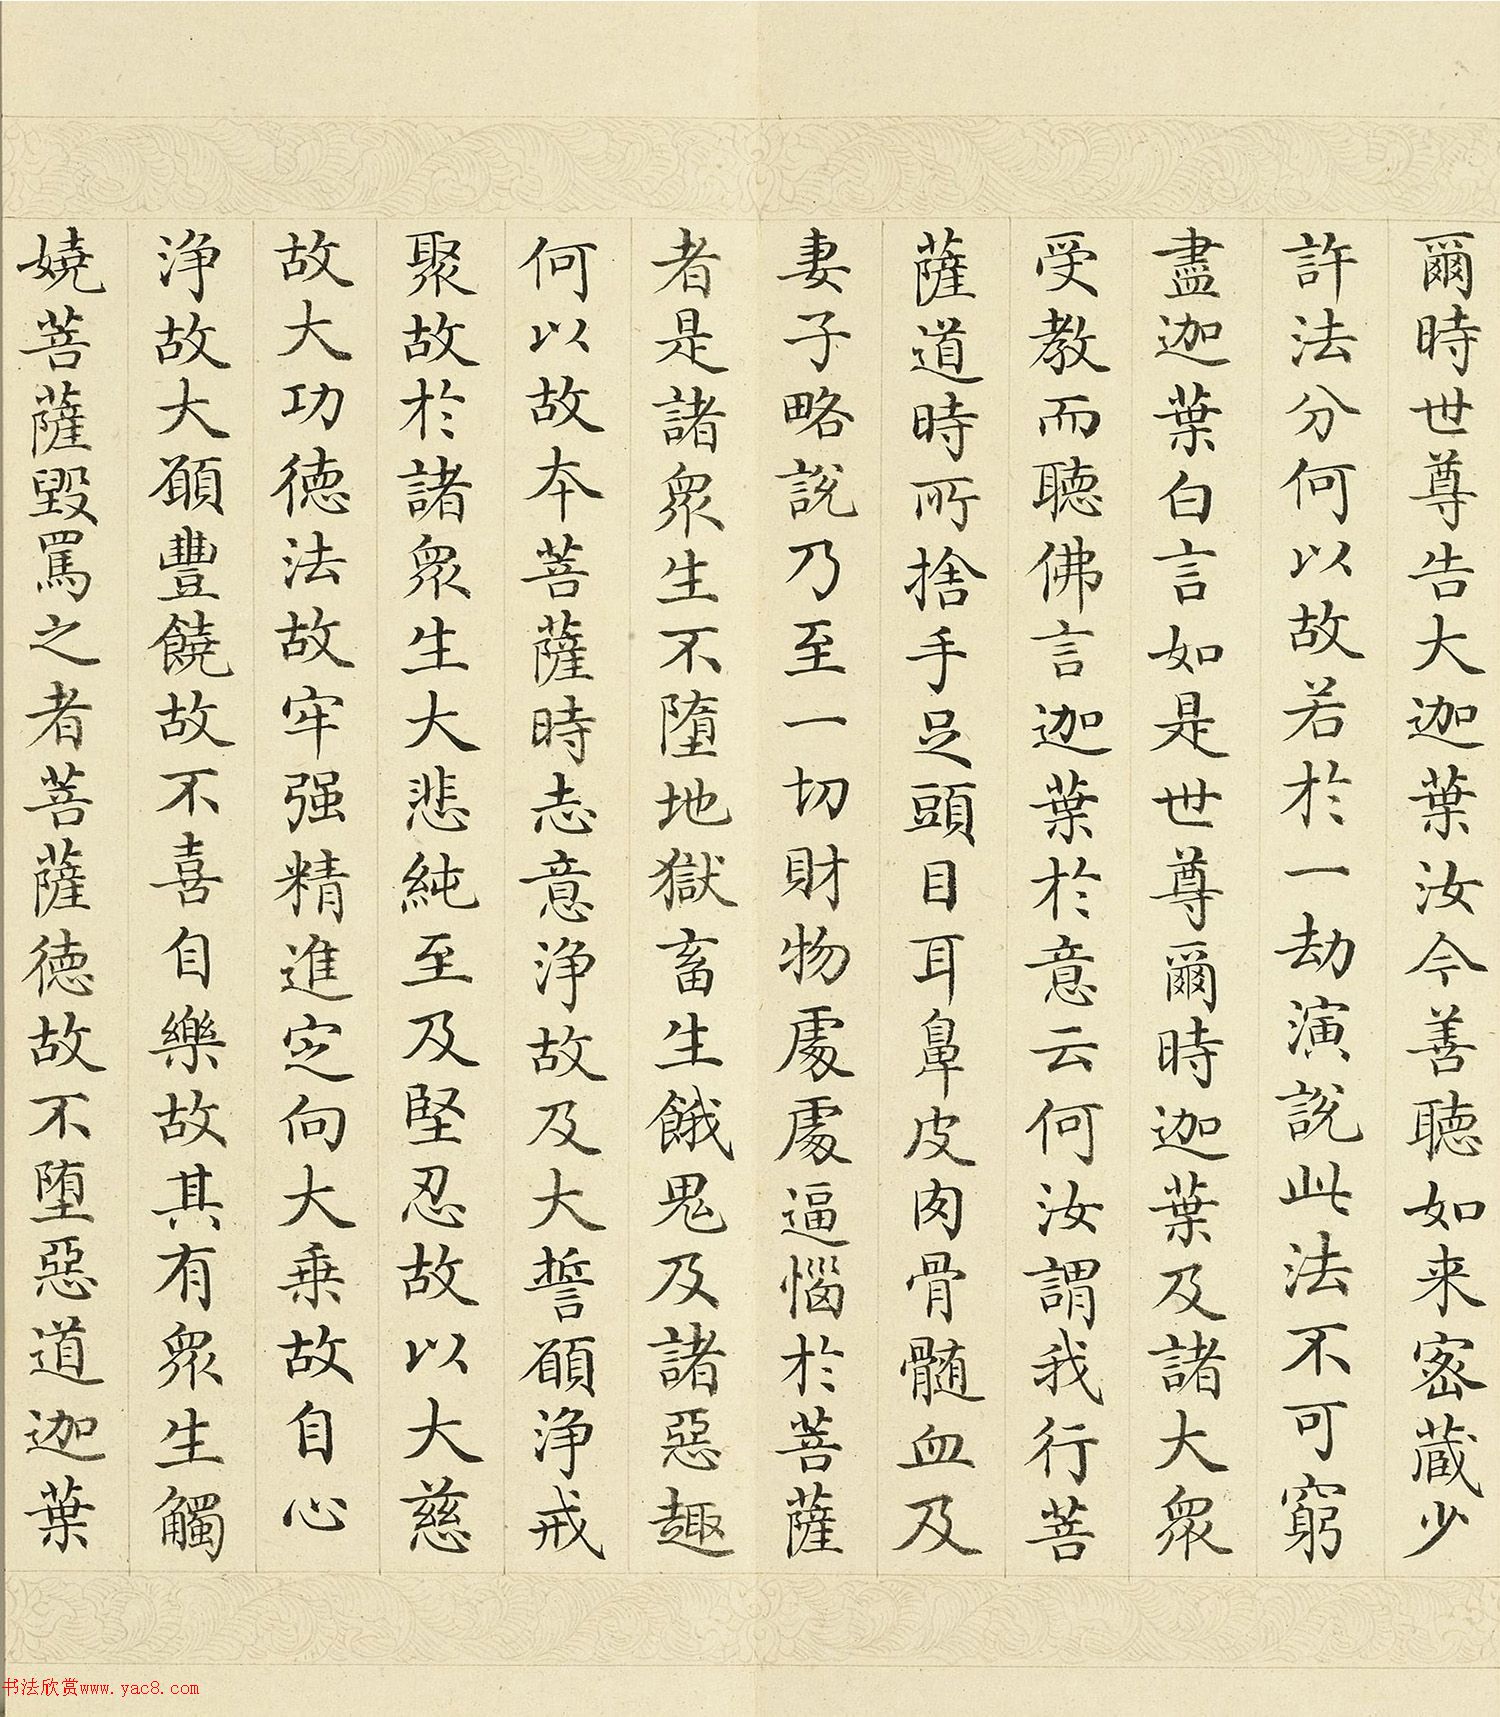 爾時世尊告大迦葉汝今善聽如来宻蔵少
許法分何以故若於一劫演說此法不可窮
盡迦葉白言如是世尊爾時迦葉及諸大衆
受教而聽佛言迦葉於意云何汝謂我行菩
薩道時所捨手足頭目耳鼻皮肉骨髓血及
妻子略說乃至一切財物處處逼惱於菩薩
者是諸衆生不墮地獄畜生餓鬼及諸惡趣
何以故本菩薩時志意浄故及大誓願浄戒
聚故於諸衆生大悲純至及堅忍故以大慈
故大功德法故牢强精進定向大乗故自心
浄故大願豐饒故不喜自樂故其有衆生觸
嬈菩薩毀罵之者菩薩德故不堕惡道迦葉
书法欣赏www.yac8.com